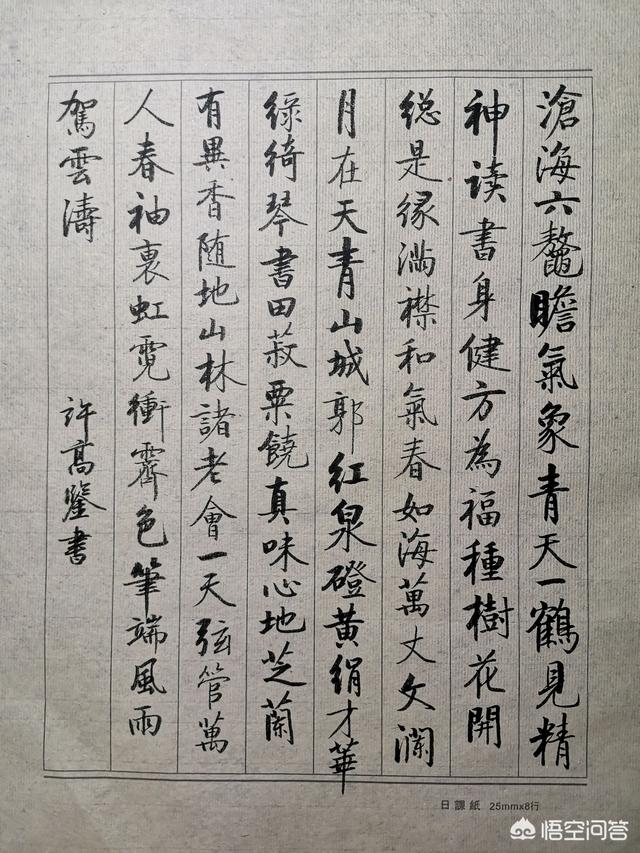 滄海六鼇瞻氣象青天一鶴見精
神读書身健方為福種樹花開
総是缘满襟和氣春如海萬丈文澜
月在天青山城郭红泉磴黄絹才華
绿绮琴書田菽粟饒真味心地芝蘭
有異香随地山林諸老會一天弦管萬
人春袖裏虹霓衝霽色筆端風雨
駕雲濤 許高鑒書
日課紙 25mmx8行
悟空问答